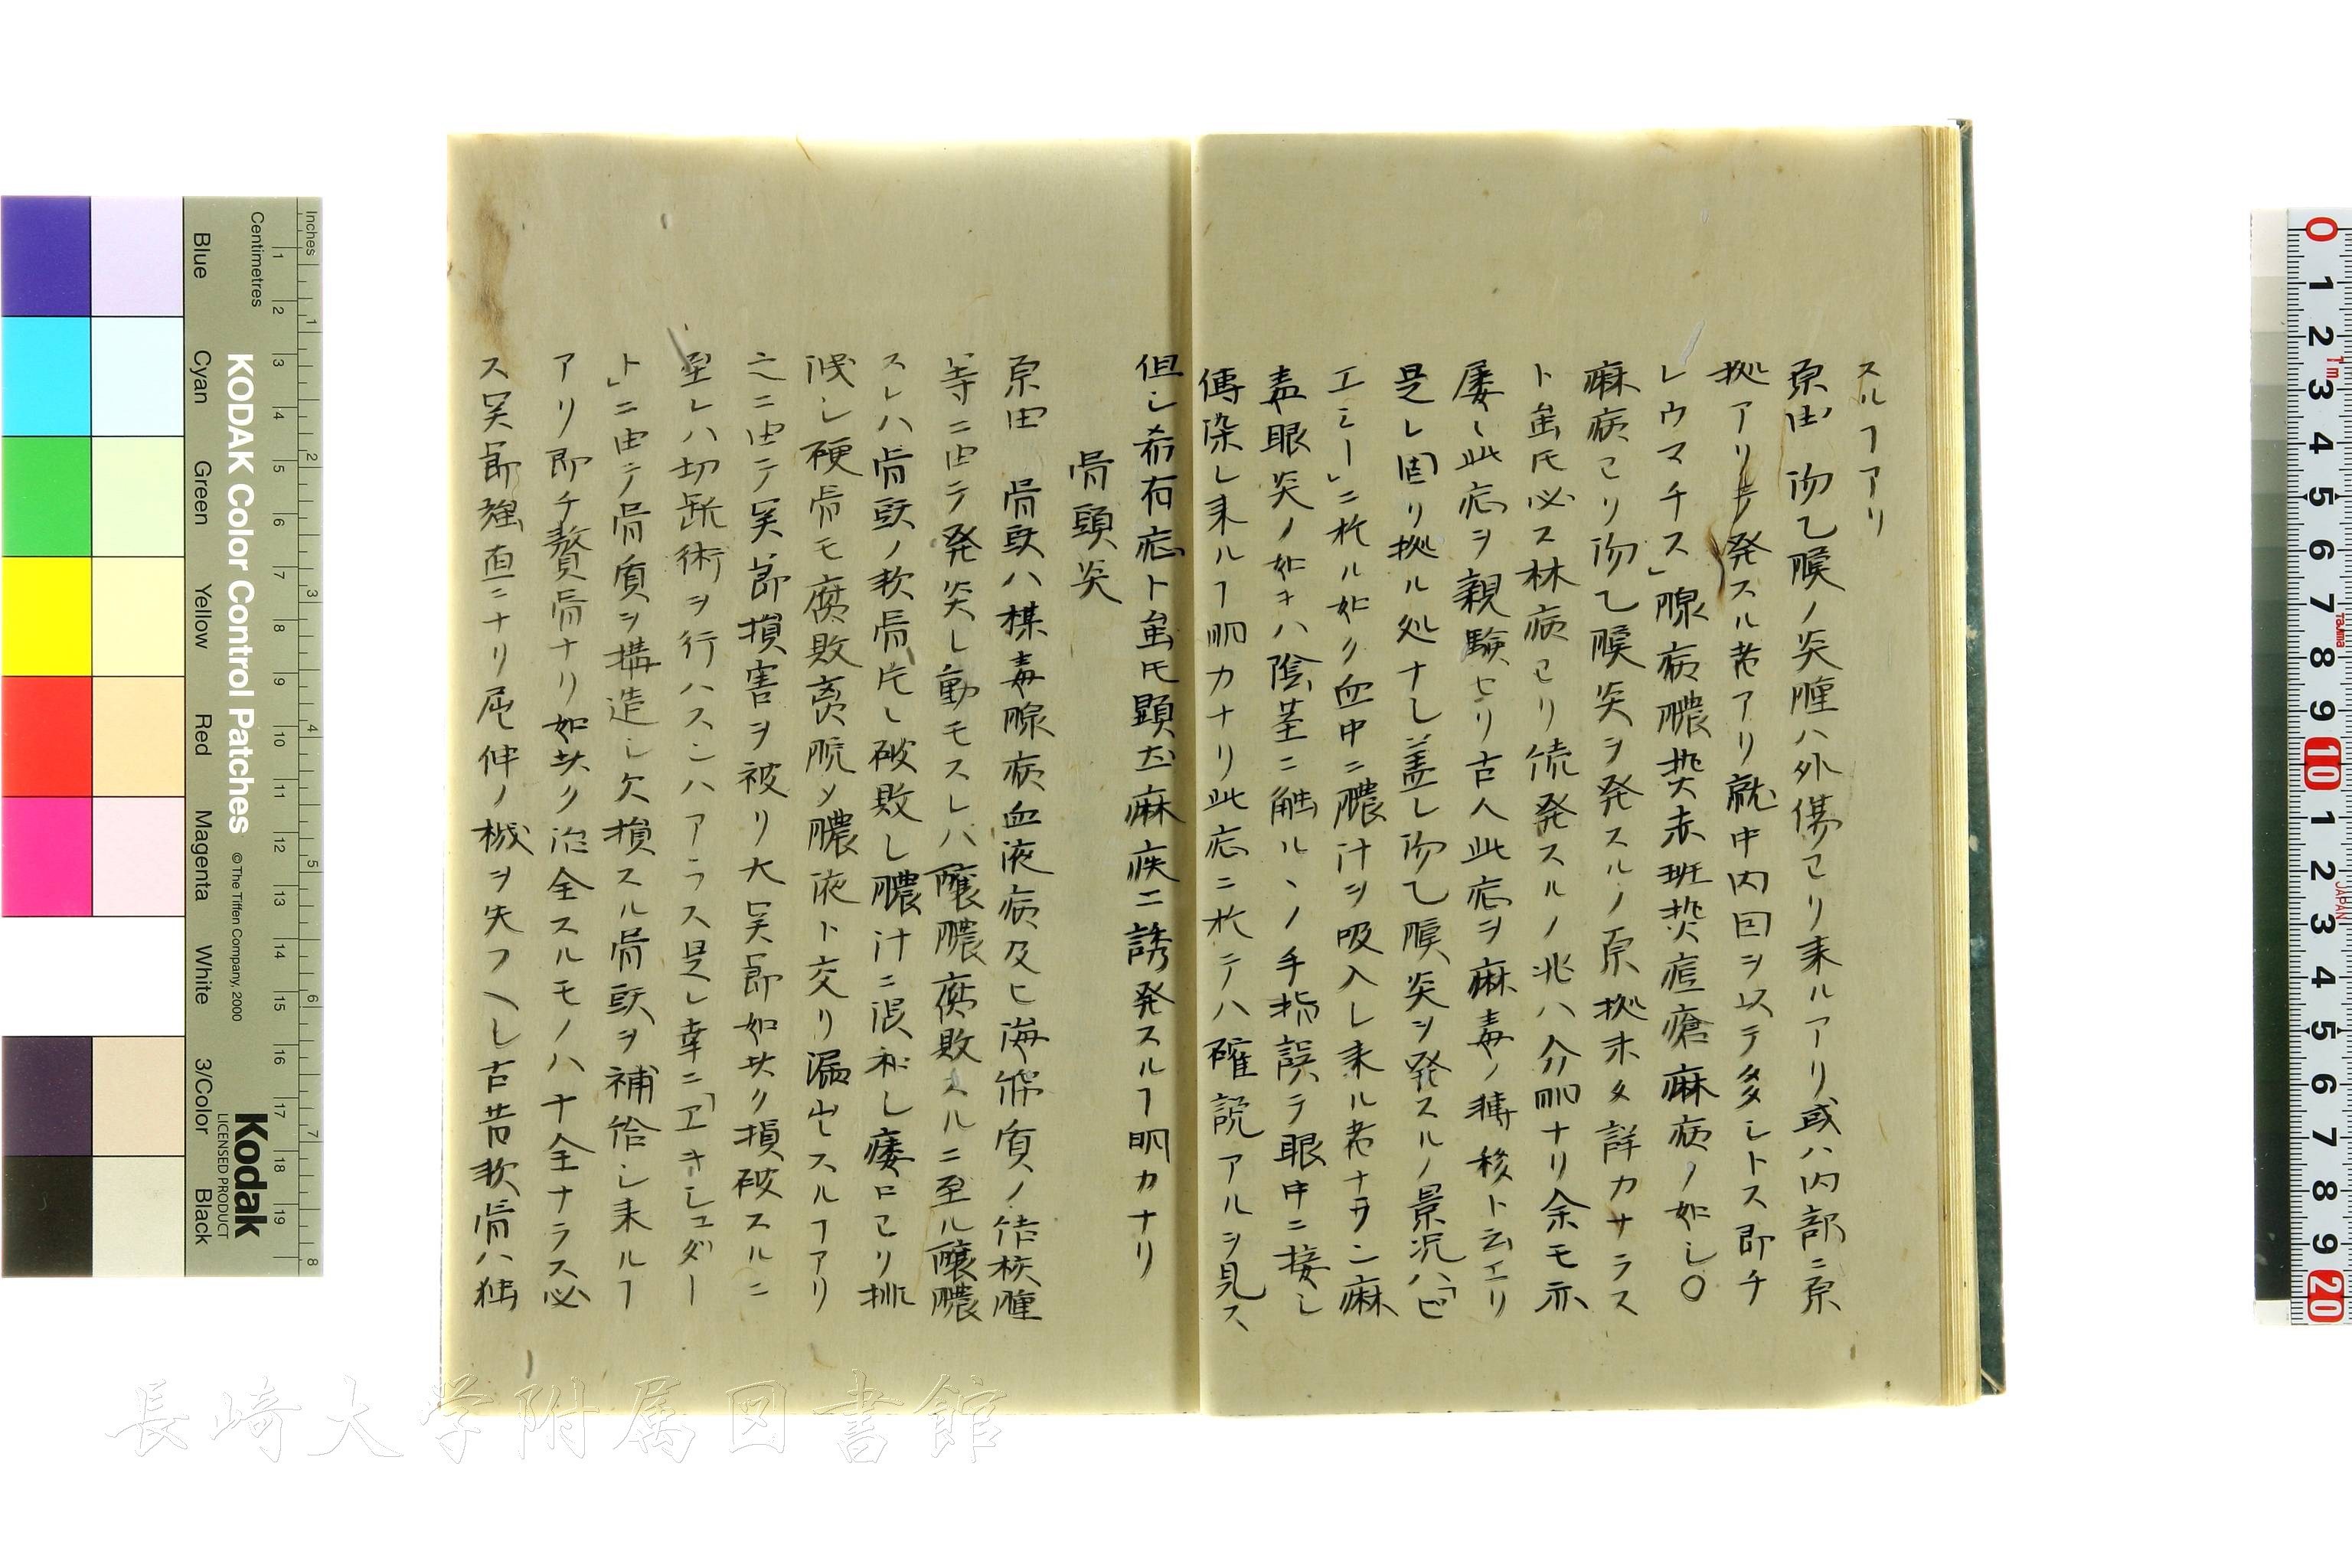 スルヿアリ
原由 泌乙膜ノ炎腫ハ外傷ヨリ来ルアリ或ハ内部ニ原
拠アリテ発スル者アリ就中内因ヲ以テ多シトス即チ
レウマチス」腺病膿熱赤斑熱痘瘡麻病ノ如シ○
麻病ヨリ泌乙膜炎ヲ発スルノ原拠未タ詳カサラス
ト虽𪜈必ス林病ヨリ続発スルノ兆ハ分明ナリ余モ亦
屡々此症ヲ親験セリ古人此症ヲ麻毒ノ転移ト云エリ
是レ固リ拠ル処ナシ蓋シ泌乙膜炎ヲ発スルノ景况ハ「ピ
エミー」ニ於ル如ク血中ニ膿汁ヲ吸入シ来ル者ナラン麻
毒眼炎ノ如キハ陰茎ニ触ルヽノ手指誤テ眼中ニ接シ
傳染シ来ルヿ明カナリ此症ニ於テハ確説アルヲ見ス
但シ希有症ト虽𪜈顕然麻疾ニ誘発スルヿ明カナリ
骨頭炎
原由 骨頭ハ楳毒腺病血液病及ヒ海綿質ノ結核腫
等ニ由テ発炎シ動モスレハ醸膿腐敗スルニ至ル醸膿
スレハ骨頭ノ軟骨先ツ破敗シ膿汁ニ混和シ瘻口ヨリ排
泄シ硬骨モ腐敗離脱メ膿液ト交リ漏出スルヿアリ
之ニ由テ関節損害ヲ被リ大関節如此ク損破スルニ
至レハ切断術ヲ行ハスンハアラス是レ幸ニ「エキシュダー
ト」ニ由テ骨質ヲ構造シ欠損スル骨頭ヲ補給シ来ルヿ
アリ即チ贅骨ナリ如此ク治全スルモノハ十全ナラス必
ス関節強直ニナリ屈伸ノ機ヲ失フヘシ古昔軟骨ハ独
Inches
Centimetres
Blue
Cyan
Green
Yellow
Red
Magenta
White
3/Color
Black
KODAK Color Control Patches
© The Tiffen Company, 2000
Kodak
LICENSED PRODUCT
長崎大学附属図書館